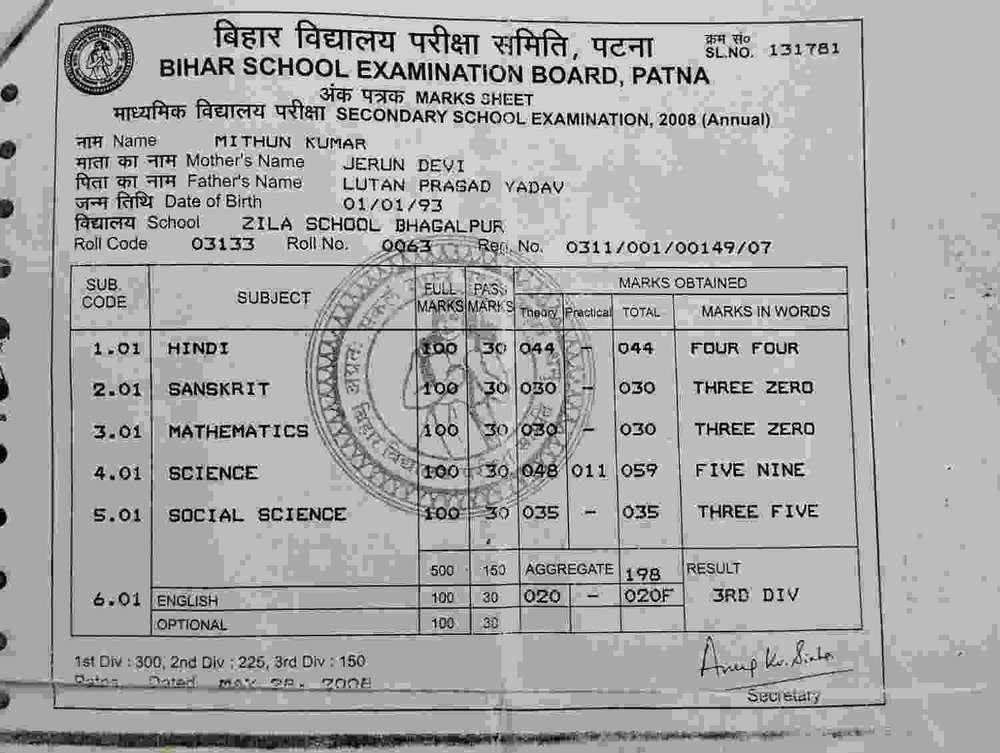 बिहार विद्यालय परीक्षा समिति, पटना
क्रम सं०
SL.NO. 131781
BIHAR SCHOOL EXAMINATION BOARD, PATNA
अंक पत्रक MARKS SHEET
माध्यमिक विद्यालय परीक्षा SECONDARY SCHOOL EXAMINATION, 2008 (Annual)
नाम Name MITHUN KUMAR
माता का नाम Mother's Name JERUN DEVI
पिता का नाम Father's Name LUTAN PRASAD YADAV
जन्म तिथि Date of Birth 01/01/93
विद्यालय School ZILA SCHOOL BHAGALPUR
Roll Code 03133 Roll No. 0063 Reg. No. 0311/001/00149/07
SUB. CODE SUBJECT FULL MARKS PASS MARKS MARKS OBTAINED
Theory Practical TOTAL MARKS IN WORDS
1.01 HINDI 100 30 044 - 044 FOUR FOUR
2.01 SANSKRIT 100 30 030 - 030 THREE ZERO
3.01 MATHEMATICS 100 30 030 - 030 THREE ZERO
4.01 SCIENCE 100 30 048 011 059 FIVE NINE
5.01 SOCIAL SCIENCE 100 30 035 - 035 THREE FIVE
500 150 AGGREGATE 198 RESULT
6.01 ENGLISH 100 30 020 - 020F 3RD DIV
OPTIONAL 100 30
1st Div : 300, 2nd Div : 225, 3rd Div : 150
Patna Dated MAY 28, 2008
Secretary